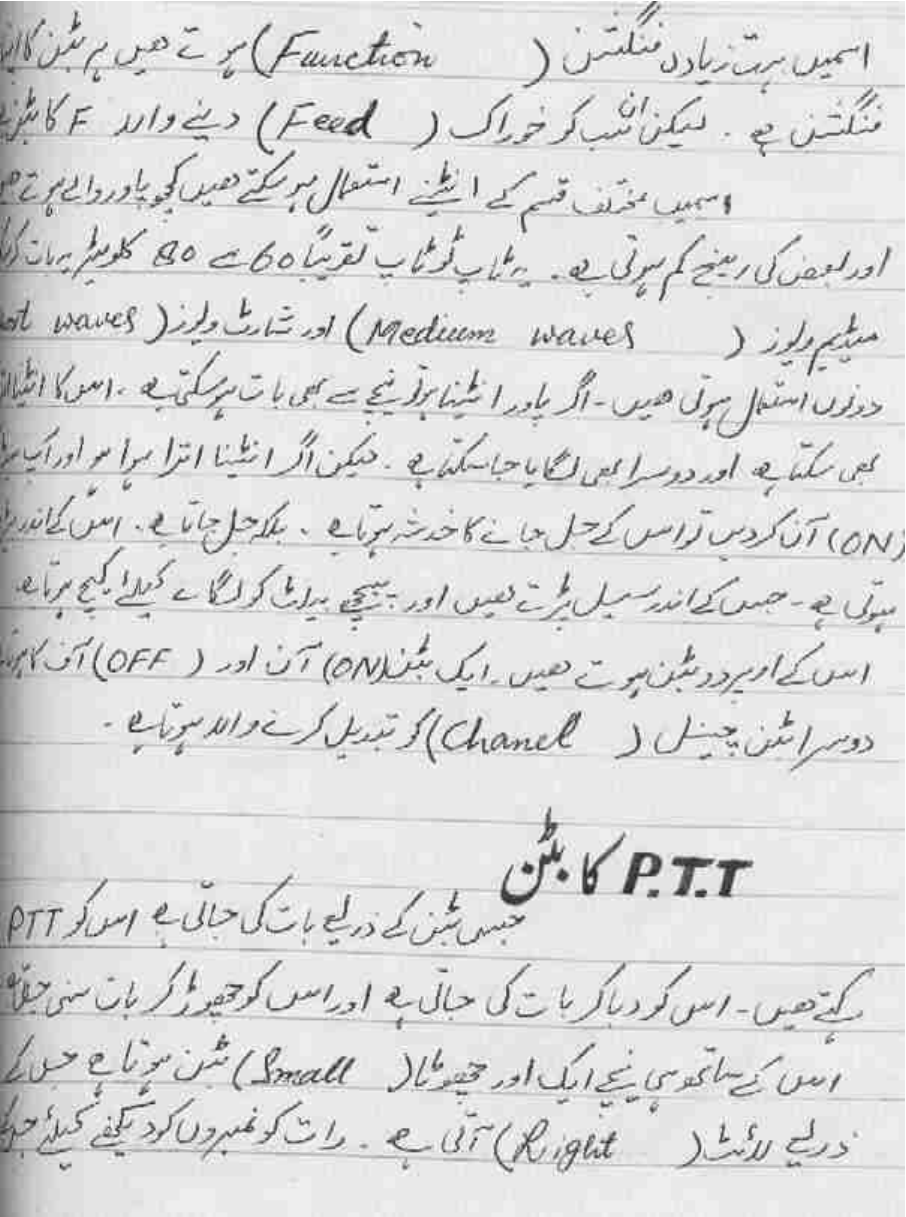 اسمیں بہت زیادہ فنگشن (Function) ہوتے ھیں ہر بٹن کا اپنا
فنگشن ہے۔ لیکن ان سب کو خوراک (Feed) دینے والا F کا بٹن
اسمیں مختلف قسم کے انٹینے استعمال ہو سکتے ھیں کچھ پاور والے ہوتے
اور بعض کی رینج کم ہوتی ہے۔ یہ ٹاپ ٹو ٹاپ تقریباً 60 سے 80 کلومیٹر پر بات
میڈیم ویوز (Medium waves) اور شارٹ ویوز (waves
دونوں استعمال ہوتی ھیں۔ اگر پاور انٹینا ہو تو نیچے سے بھی بات ہو سکتی ہے۔ اس کا
بھی سکتا ہے اور دوسرا بھی لگایا جا سکتا ہے۔ لیکن اگر انٹینا اترا ہوا ہو اور آپ
(ON) آن کر دیں تو اس کے جل جانے کا خدشہ ہوتا ہے۔ بلکہ جل جاتا ہے۔ اس کے اندر
ہوتی ہے۔ جس کے اندر سیل پڑتے ھیں اور پیچھے لگانے کیلئے ہوتا ہے۔
اس کے اوپر دو بٹن ہوتے ھیں۔ ایک بٹن (ON) آن اور (OFF) آف کا
دوسرا بٹن چینل (Chanel) کو تبدیل کرنے والا ہوتا ہے۔
P.T.T کا بٹن
جس بٹن کے ذریعے بات کی جاتی ہے اس کو PTT
کہتے ھیں۔ اس کو دبا کر بات کی جاتی ہے اور اس کو چھوڑ کر بات سنی جاتی
اس کے ساتھ ہی نیچے ایک اور چھوٹا (Small) بٹن ہوتا ہے جس کے
ذریعے لائٹ (Right) آتی ہے۔ رات کو نمبروں کو دیکھنے کیلئے